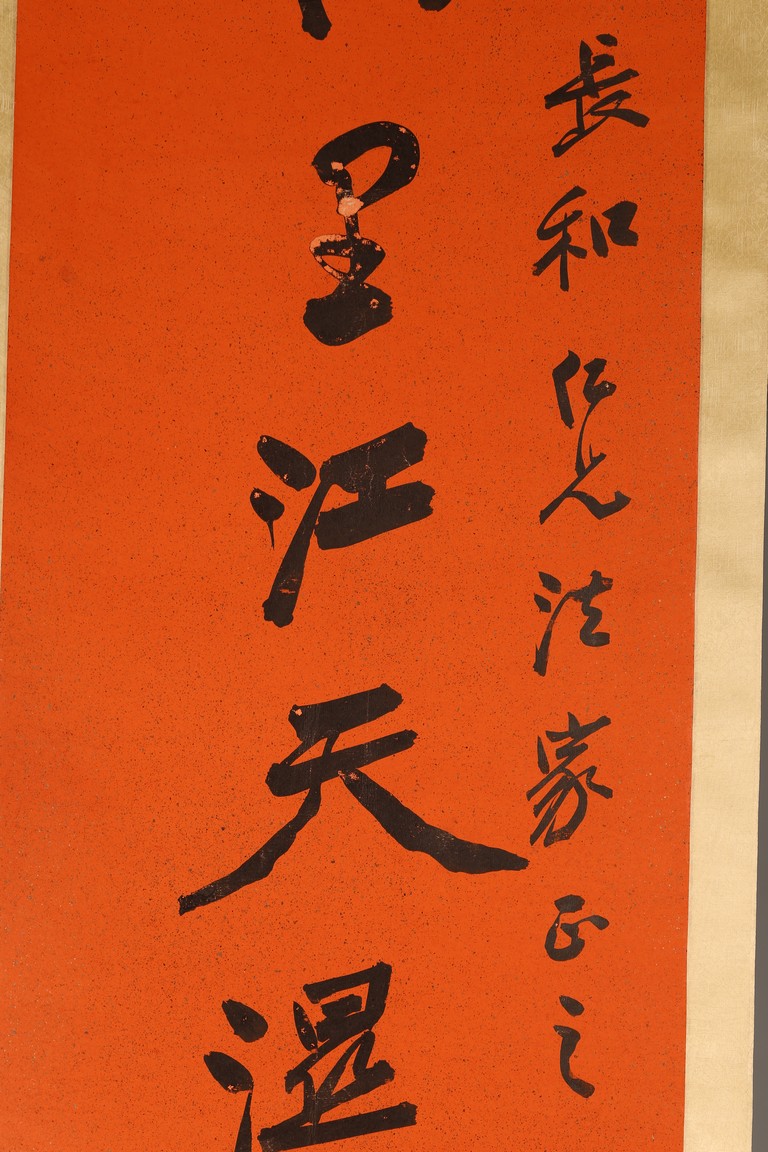 長和仁兄法家正之
里江天湿